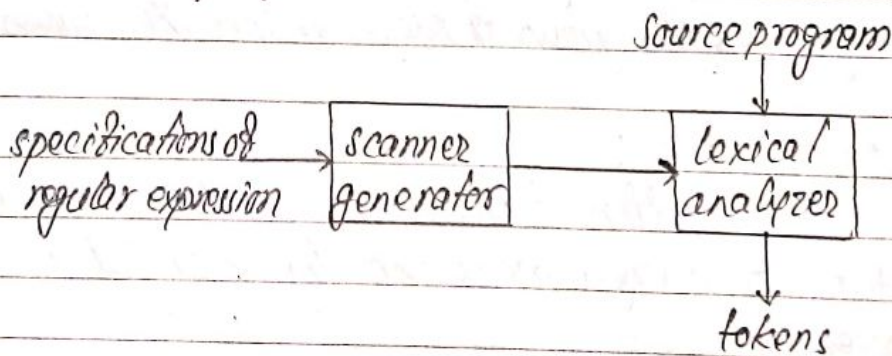 source program
specifications of
regular expression
scanner
generator
lexical
analyzer
tokens